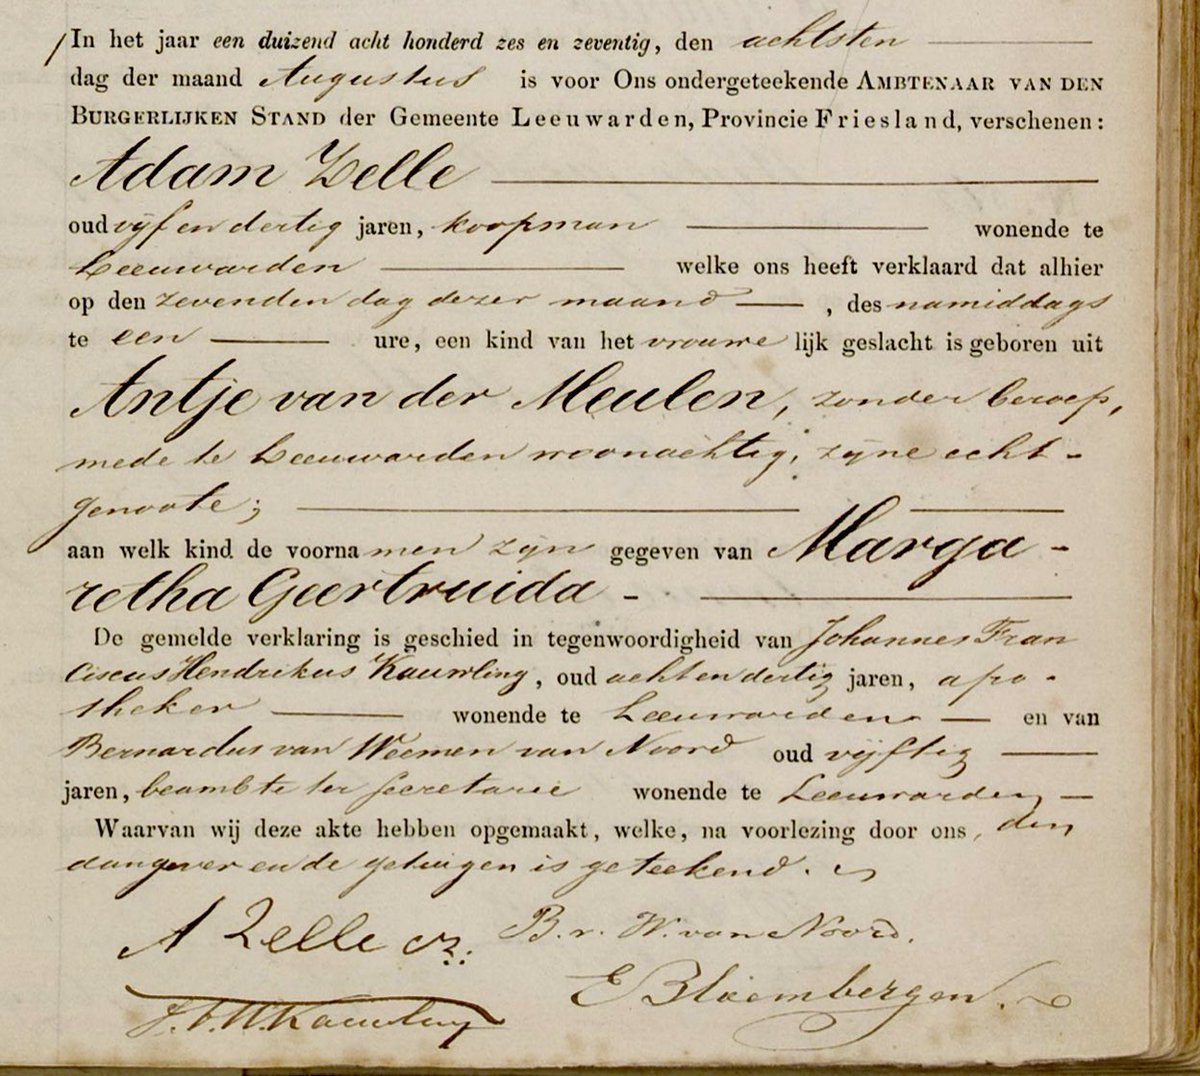 In het jaar een duizend acht honderd zes en zeventig, den achtsten
dag der maand Augustus is voor Ons ondergeteekende AMBTENAAR VAN DEN
BURGERLIJKEN STAND der Gemeente Leeuwarden, Provincie Friesland, verschenen:
Adam Zelle
oud vijf en dertig jaren, koopman wonende te
Leeuwarden welke ons heeft verklaard dat alhier
op den zevenden dag dezer maand, des namiddags
te een ure, een kind van het vrouwelijk geslacht is geboren uit
Antje van der Meulen, zonder beroep,
mede te Leeuwarden woonachtig, zijne echt-
genoote;
aan welk kind de voornamen zijn gegeven van Marga-
retha Geertruida -
De gemelde verklaring is geschied in tegenwoordigheid van Johannes Fran
ciscus Hendrikus Kauwling, oud acht en dertig jaren, apo-
theker wonende te Leeuwarden en van
Bernardus van Weemen van Noord oud vijftig
jaren, beambte ter secretarie wonende te Leeuwarden
Waarvan wij deze akte hebben opgemaakt, welke, na voorlezing door ons, den
aangever en de getuigen is geteekend.
A Zelle cz: B. v. W. van Noord.
E Bloembergen.
J. F. H. Kauwling